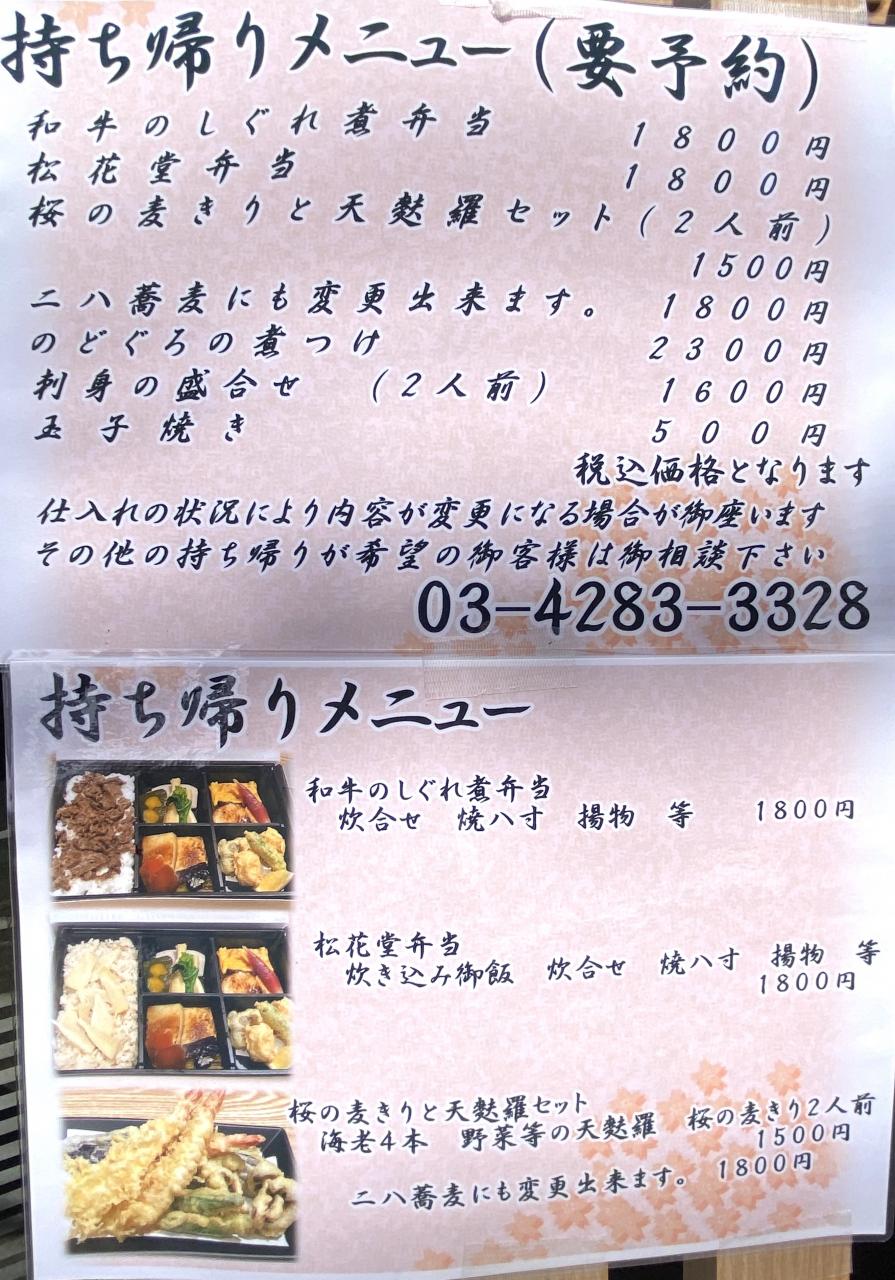 持ち帰りメニュー(要予約)
和牛のしぐれ煮弁当 1800円
松花堂弁当 1800円
桜の麦きりと天麩羅セット(2人前)
1500円
二八蕎麦にも変更出来ます。 1800円
のどぐろの煮つけ 2300円
刺身の盛合せ (2人前) 1600円
玉子焼き 500円
税込価格となります
仕入れの状況により内容が変更になる場合が御座います
その他の持ち帰りが希望の御客様は御相談下さい
03-4283-3328
持ち帰りメニュー
和牛のしぐれ煮弁当
炊合せ 焼八寸 揚物 等 1800円
松花堂弁当
炊き込み御飯 炊合せ 焼八寸 揚物 等
1800円
桜の麦きりと天麩羅セット
海老4本 野菜等の天麩羅 桜の麦きり2人前
1500円
二八蕎麦にも変更出来ます。 1800円